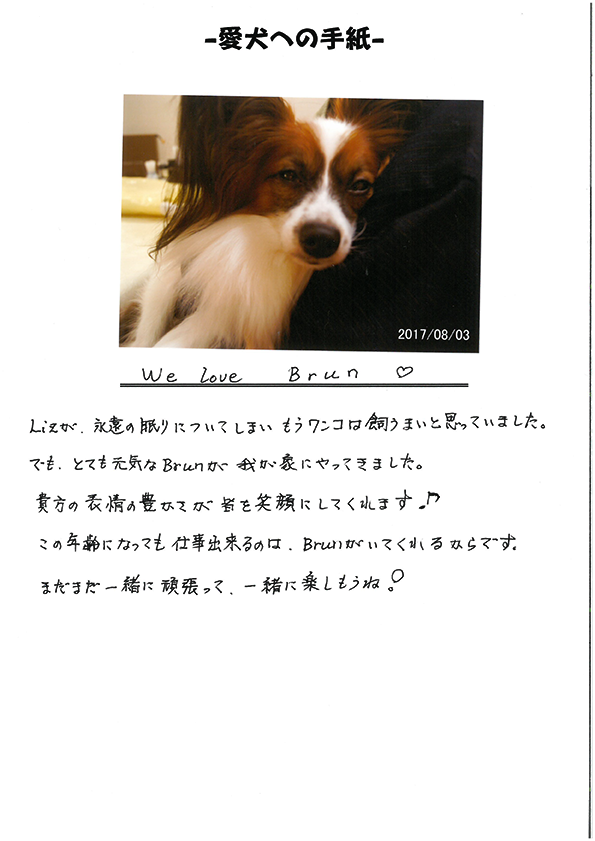 -愛犬への手紙-
2017/08/03
We love Brun ♡
Lizが、永遠の眠りについてしまい もうワンコは飼うまいと思っていました。
でも、とても元気なBrunが 我が家にやってきました。
貴方の表情の豊かさが 皆を笑顔にしてくれます♪
この年齢になっても 仕事出来るのは、Brunがいてくれるからです。
まだまだ一緒に頑張って、一緒に楽しもうね!